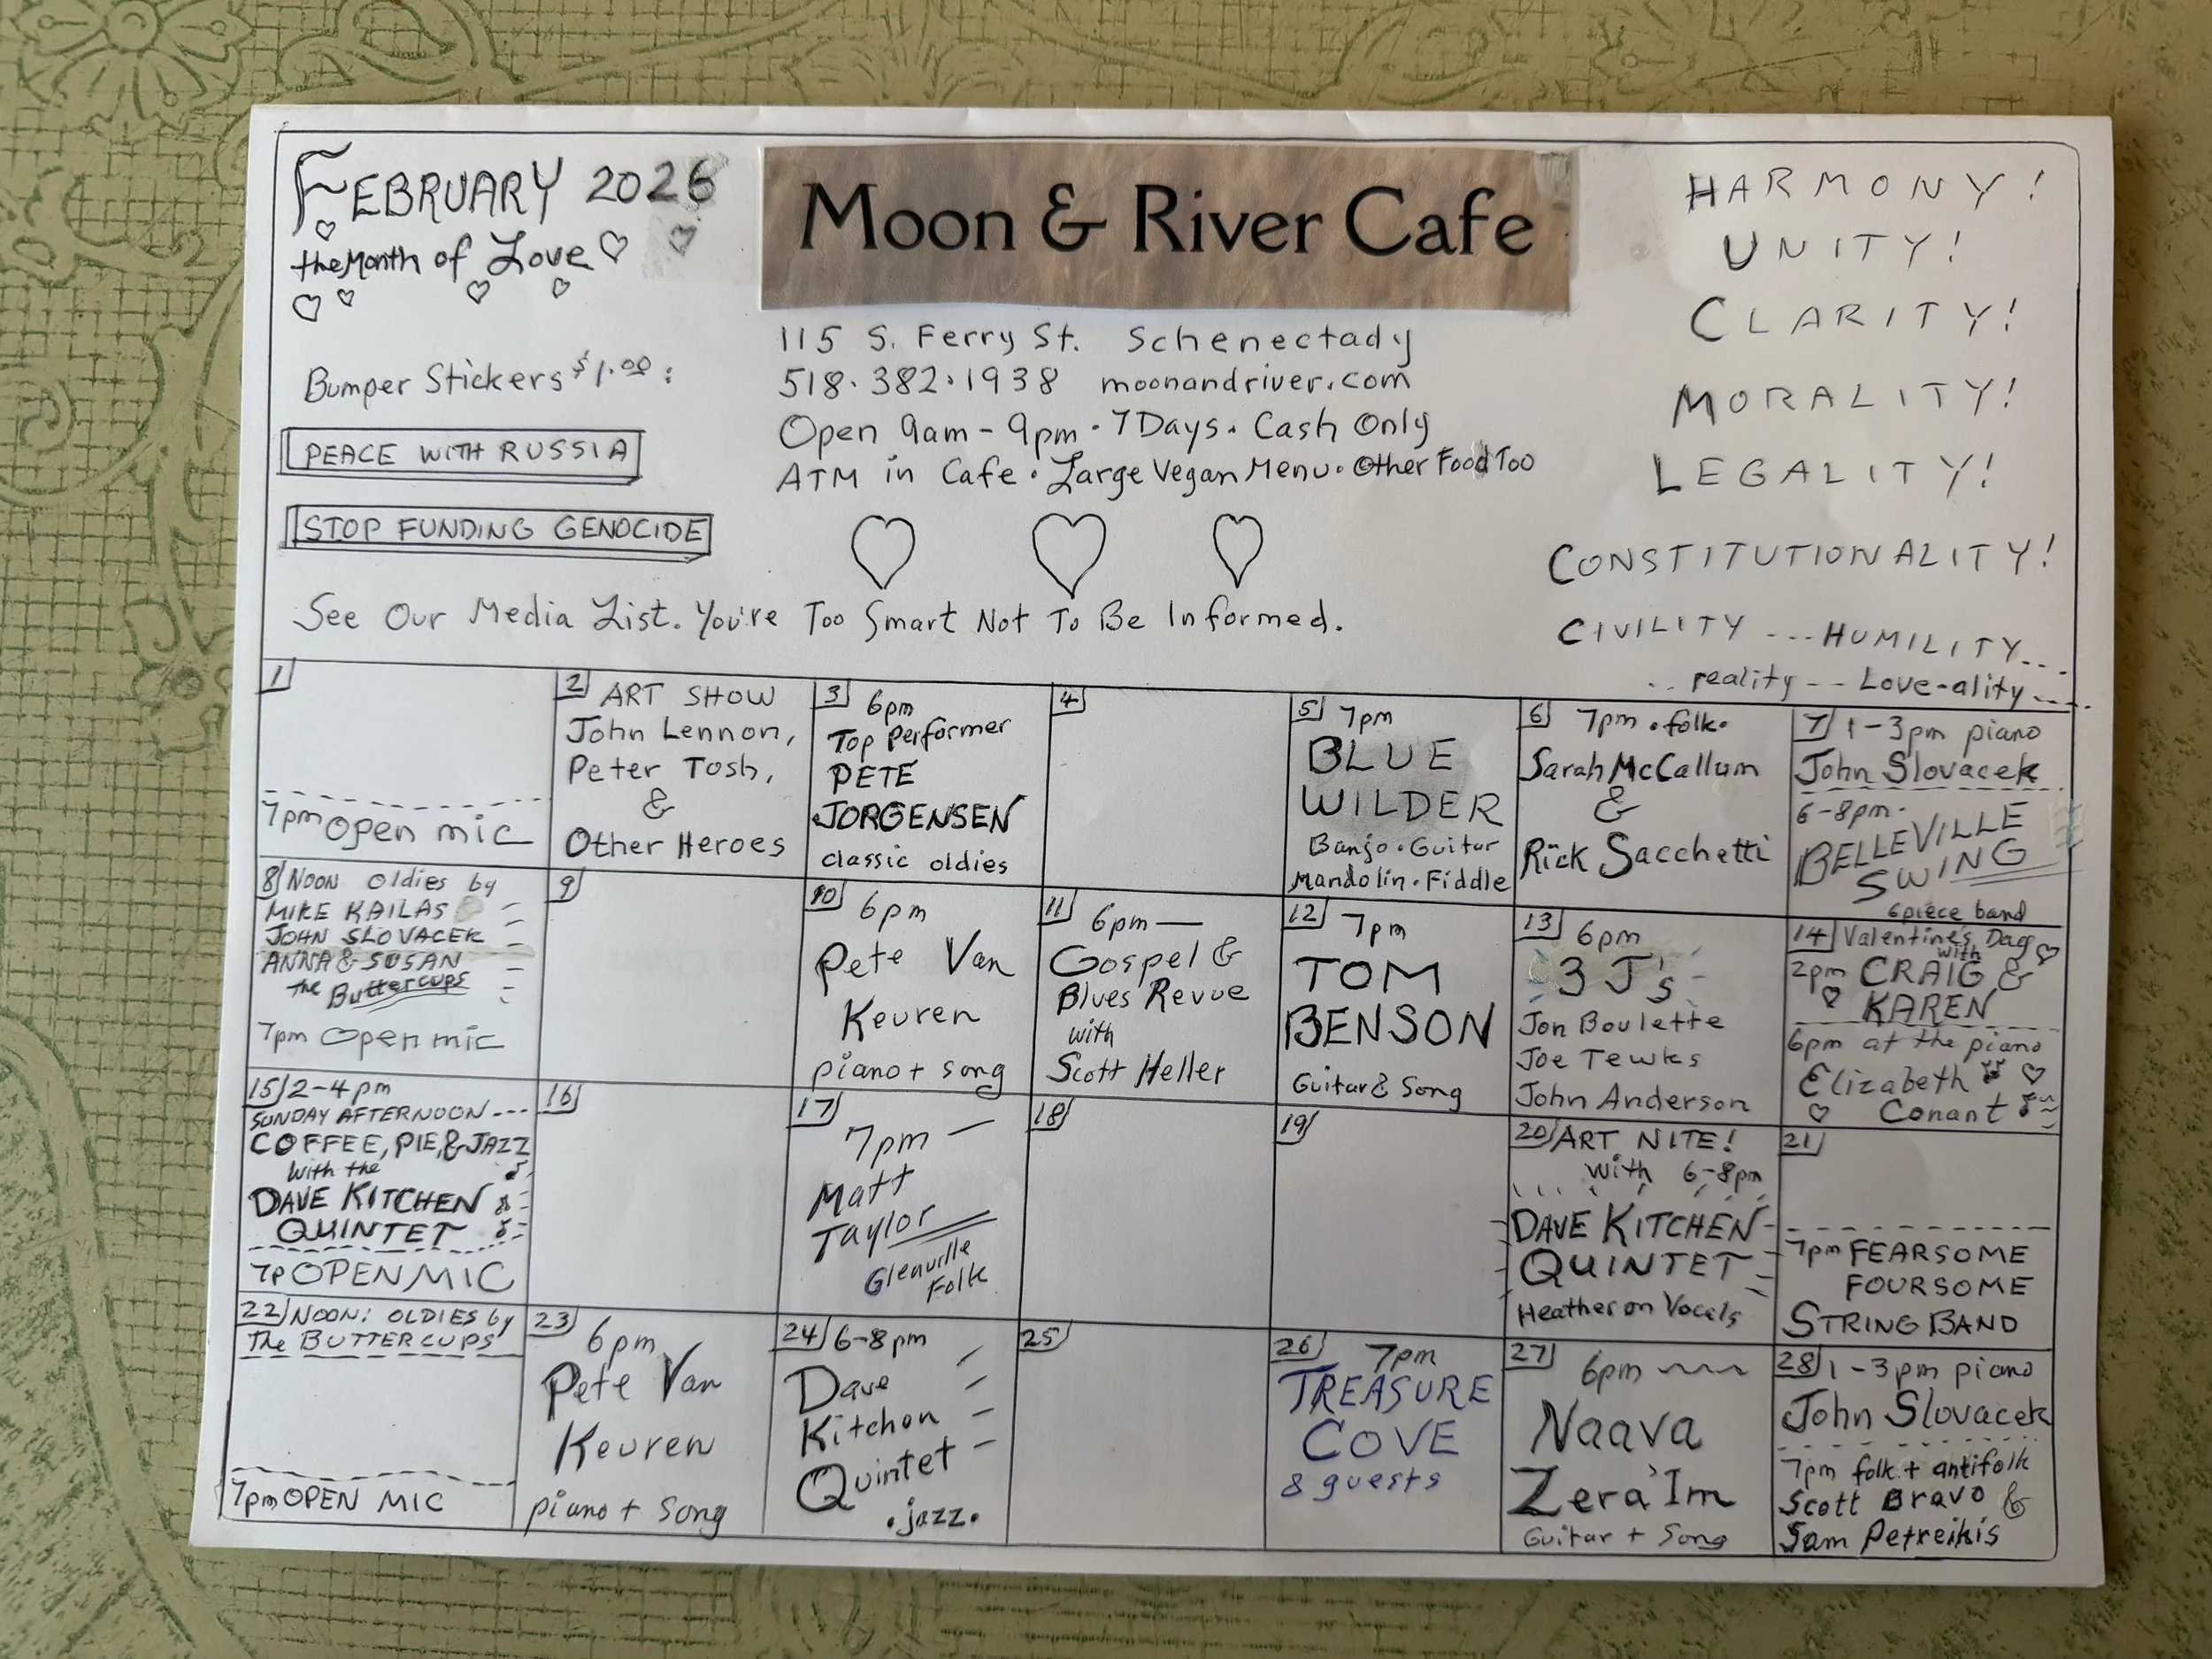 FEBRUARY 2026
the Month of Love
Bumper Stickers $1.00:
PEACE WITH RUSSIA
STOP FUNDING GENOCIDE
See Our Media List. You're Too Smart Not To Be Informed.
Moon & River Cafe
115 S. Ferry St. Schenectady
518.382.1938 moonandriver.com
Open 9am - 9pm · 7 Days · Cash Only
ATM in Cafe · Large Vegan Menu · Other Food Too
HARMONY!
UNITY!
CLARITY!
MORALITY!
LEGALITY!
CONSTITUTIONALITY!
CIVILITY ... HUMILITY...
.. reality -- Love-ality....
1
7pm Open mic
2 ART SHOW
John Lennon,
Peter Tosh,
&
Other Heroes
3 6pm
Top Performer
PETE
JORGENSEN
classic oldies
4
5 7pm
BLUE
WILDER
Banjo · Guitar
Mandolin · Fiddle
6 7pm · folk ·
Sarah McCallum
&
Rick Sacchetti
7 1-3pm piano
John Slovacek
6-8pm ·
BELLEVILLE
SWING
6 piece band
8 NOON Oldies by
MIKE KAILAS
JOHN SLOVACEK
ANNA & SUSAN
the Buttercups
7pm Open mic
9
10 6pm
Pete Van
Keuren
piano + song
11 6pm —
Gospel &
Blues Revue
with
Scott Heller
12 7pm
TOM
BENSON
Guitar & Song
13 6pm
3 J's
Jon Boulette
Joe Tewks
John Anderson
14 Valentine's Day
with
2pm CRAIG &
KAREN
6pm at the piano
Elizabeth
Conant
15 2-4 pm
SUNDAY AFTERNOON ---
COFFEE, PIE, & JAZZ
with the
DAVE KITCHEN
QUINTET
7p OPEN MIC
16
17
7pm —
Matt
Taylor
Glenville
Folk
18
19
20 ART NITE!
with 6-8pm
DAVE KITCHEN
QUINTET
Heather on Vocals
21
7pm FEARSOME
FOURSOME
STRING BAND
22 NOON: OLDIES by
The BUTTERCUPS
7pm OPEN MIC
23
6pm
Pete Van
Keuren
piano + song
24 6-8pm
Dave
Kitchen
Quintet
· jazz ·
25
26 7pm
TREASURE
COVE
& guests
27 6pm
Naava
Zera'Im
Guitar + Song
28 1-3pm piano
John Slovacek
7pm folk + antifolk
Scott Bravo &
Sam Petreikis